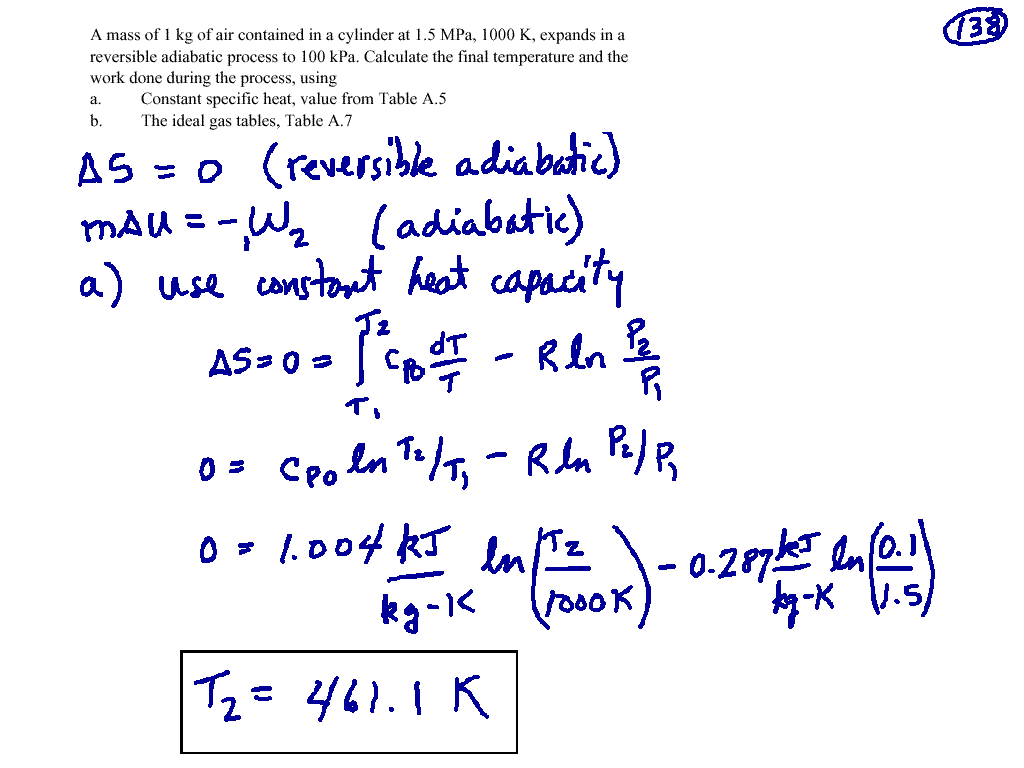 A mass of 1 kg of air contained in a cylinder at 1.5 MPa, 1000 K, expands in a
reversible adiabatic process to 100 kPa. Calculate the final temperature and the
work done during the process, using
a. Constant specific heat, value from Table A.5
b. The ideal gas tables, Table A.7
ΔS = 0 (reversible adiabatic)
mΔu = -₁W₂ (adiabatic)
a) use constant heat capacity
ΔS = 0 = ∫_{T₁}^{T₂} C_{P0} dT/T - R ln P₂/P₁
0 = C_{P0} ln T₂/T₁ - R ln P₂/P₁
0 = 1.004 kJ/kg-K ln (T₂/1000K) - 0.287 kJ/kg-K ln (0.1/1.5)
T₂ = 461.1 K